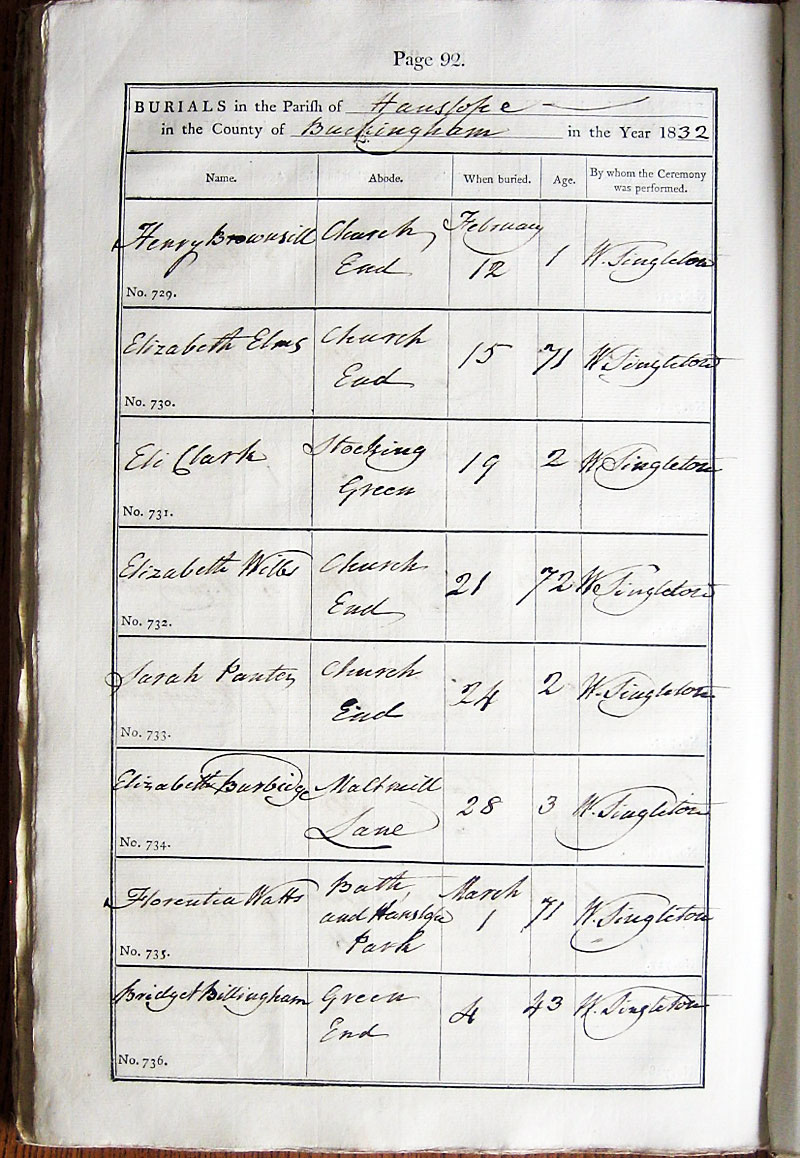 Page 92.
BURIALS in the Parish of Hanslope
in the County of Buckingham in the Year 1832
Name. Abode. When buried. Age. By whom the Ceremony was performed.
Henry Brownsill Church End February 12 1 W. Singleton
No. 729.
Elizabeth Elms Church End 15 71 W. Singleton
No. 730.
Eli Clark Stocking Green 19 2 W. Singleton
No. 731.
Elizabeth Church End 21 72 W. Singleton
No. 732.
Sarah Panter Church End 24 2 W. Singleton
No. 733.
Elizabeth Burbidge Maltmill Lane 28 3 W. Singleton
No. 734.
Florentia Watts Bath, and Hanslope Park March 1 71 W. Singleton
No. 735.
Bridget Billingham Green End 4 43 W. Singleton
No. 736.